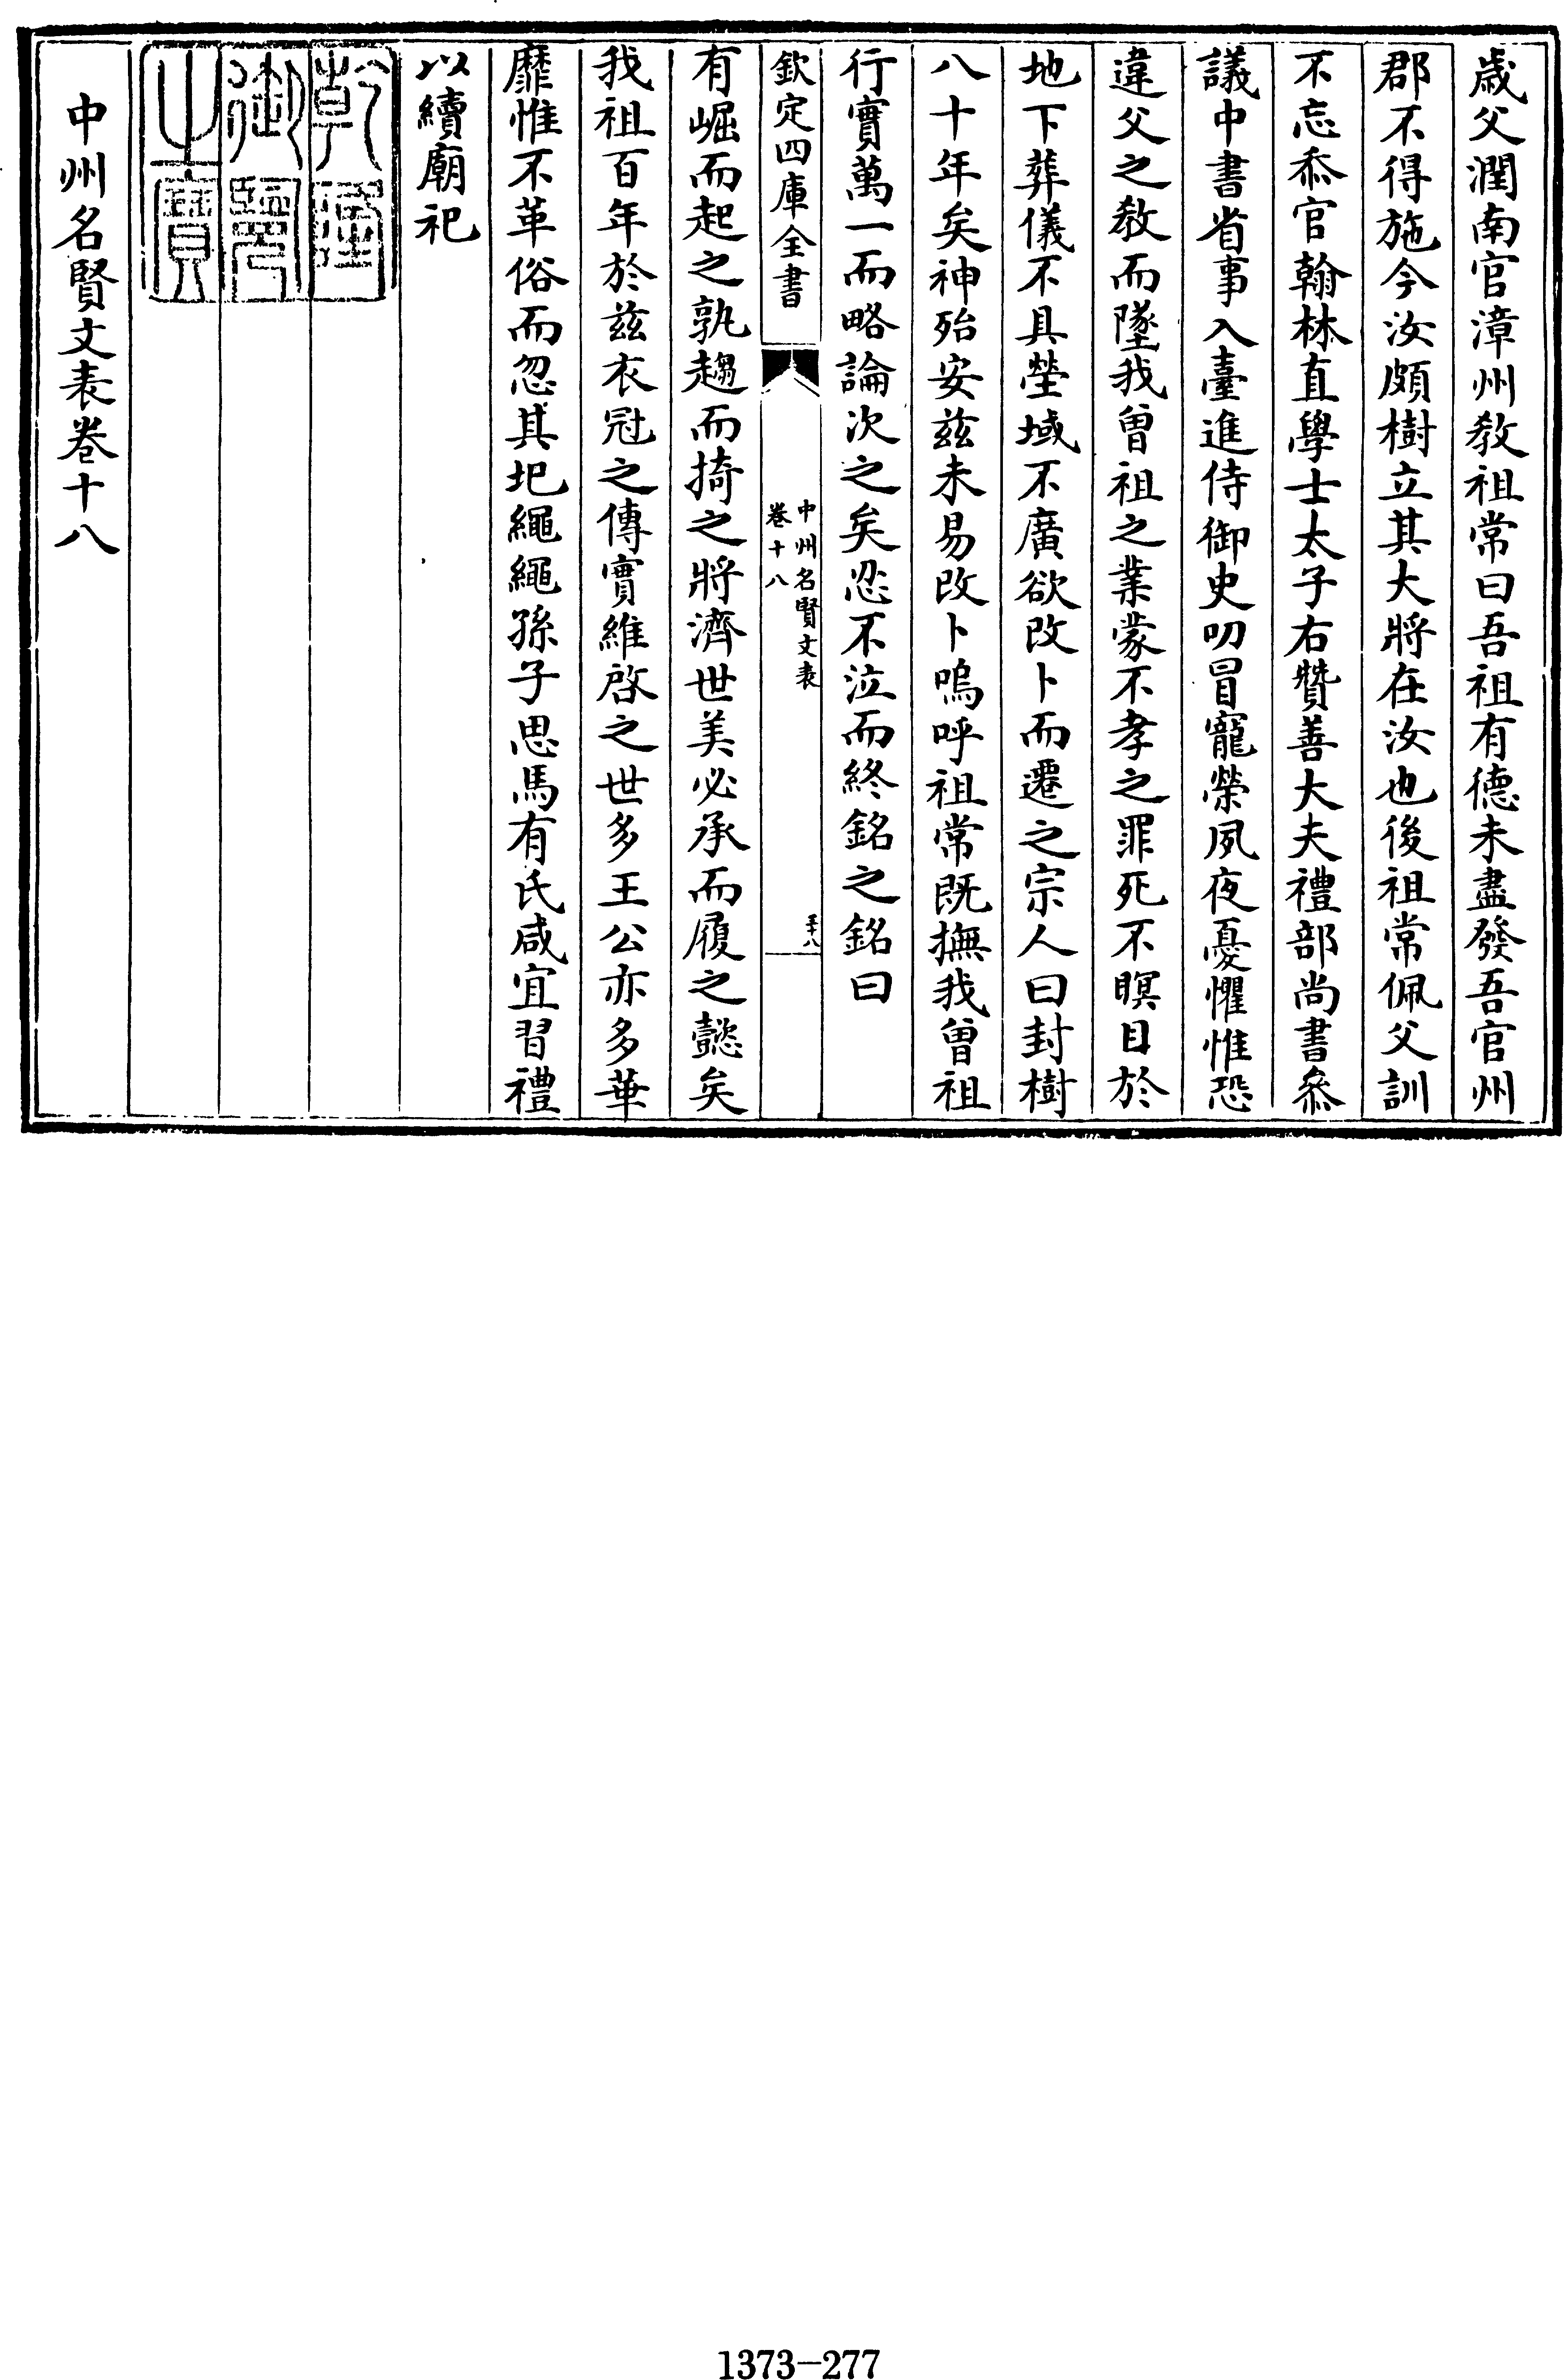 歳父潤南官漳州教祖常曰吾祖有德未盡發吾官州
郡不得施今汝頗樹立其大將在汝也後祖常佩父訓
不忘忝官翰林直學士太子右贊善大夫禮部尚書叅
議中書省事入臺進侍御史叨冒寵榮夙夜憂懼惟恐
違父之教而墜我曽祖之業蒙不孝之罪死不瞑目於
地下葬儀不具塋域不廣欲改卜而遷之宗人曰封樹
八十年矣神殆安兹未易改卜嗚呼祖常既撫我曽祖
行實萬一而略論次之矣忍不泣而終銘之銘曰
欽定四庫全書
中州名賢文表
卷十八
有崛而起之孰趨而掎之將濟世美必承而履之懿矣
我祖百年於兹衣冠之傳實維啓之世多王公亦多華
靡惟不革俗而忽其圯繩繩孫子思馬有氏咸宜習禮
以續廟祀
乾隆
御覽
之寶
中州名賢文表卷十八
1373-277